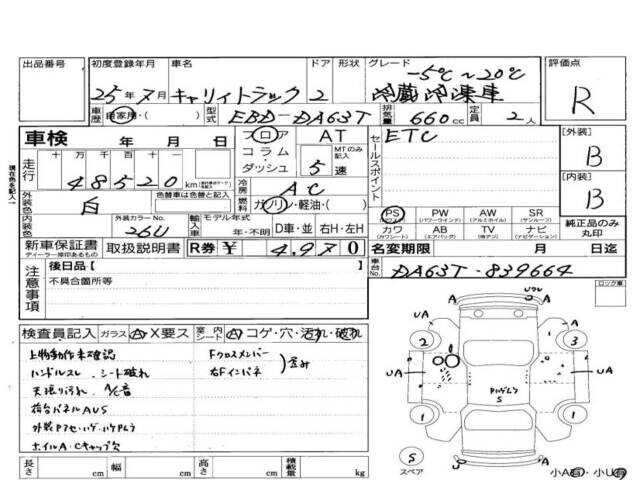 出品番号 初度登録年月 車名 ドア 形状 グレード 評価点
-5℃~20℃
25年7月 キャリイトラック 2 冷蔵冷凍車 R
車歴 自家用・( ) 型式 EBD-DA63T 排気量 660cc 定員 2人
車検 年 月 日 フロア AT ETC [外装]
コラム・ MTのみ記入 セールスポイント B
現在色を記入
走行 十 万 千 百 十 一 ダッシュ 5速 [内装]
48520 km 冷房 AC B
外装色 白 色替車は色替と記入 燃料 ガソリン・軽油・( ) PS (パワステ) PW (パワーウインド) AW (アルミホイル) SR (サンルーフ)
内装色 外装カラーNo. 26U 輸入車 モデル年式 年・不明 D車・並 右H・左H カワ (カワシート) AB (エアバッグ) TV (地デジ) ナビ (ナビゲーション) 純正品のみ丸印
新車保証書 ディーラー捺印あるもの 取扱説明書 R券 ¥ 4,970 名変期限 月 日迄
注意事項 後日品[ ] 車台No. DA63T-839664
不具合箇所等 ロック車
検査員記入 ガラス A・X要ス 室内シート A コゲ・穴・汚れ・破れ
上物動作未確認 Fクロスメンバー
ハンドルスレ シート破れ 右Fインパネ 歪み
天張り汚れ A/C音
指台パネルAUS
ホイルA・Cキャップ欠
UA A A UA
2 3
UA UA
S
1 1
S スペア
長さ cm 幅 cm 高さ cm 積載量 kg 小A有・小U有